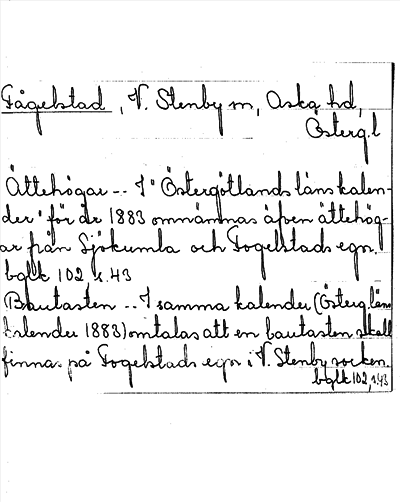 Fågelstad, V. Stenby sn, Aska hd,
Österg.l
Ättehögar -- I "Östergötlands läns kalen-
der" för år 1883 omnämnas äfven ättehög-
ar från Sjökumla och Fogelstads egor.
bglk 102 s.43
Bautasten -- I samma kalender (Österg.läns
kalender 1883) omtalas att en bautasten skall
finnas på Fogelstads egor i V. Stenby socken.
bglk 102, s.43